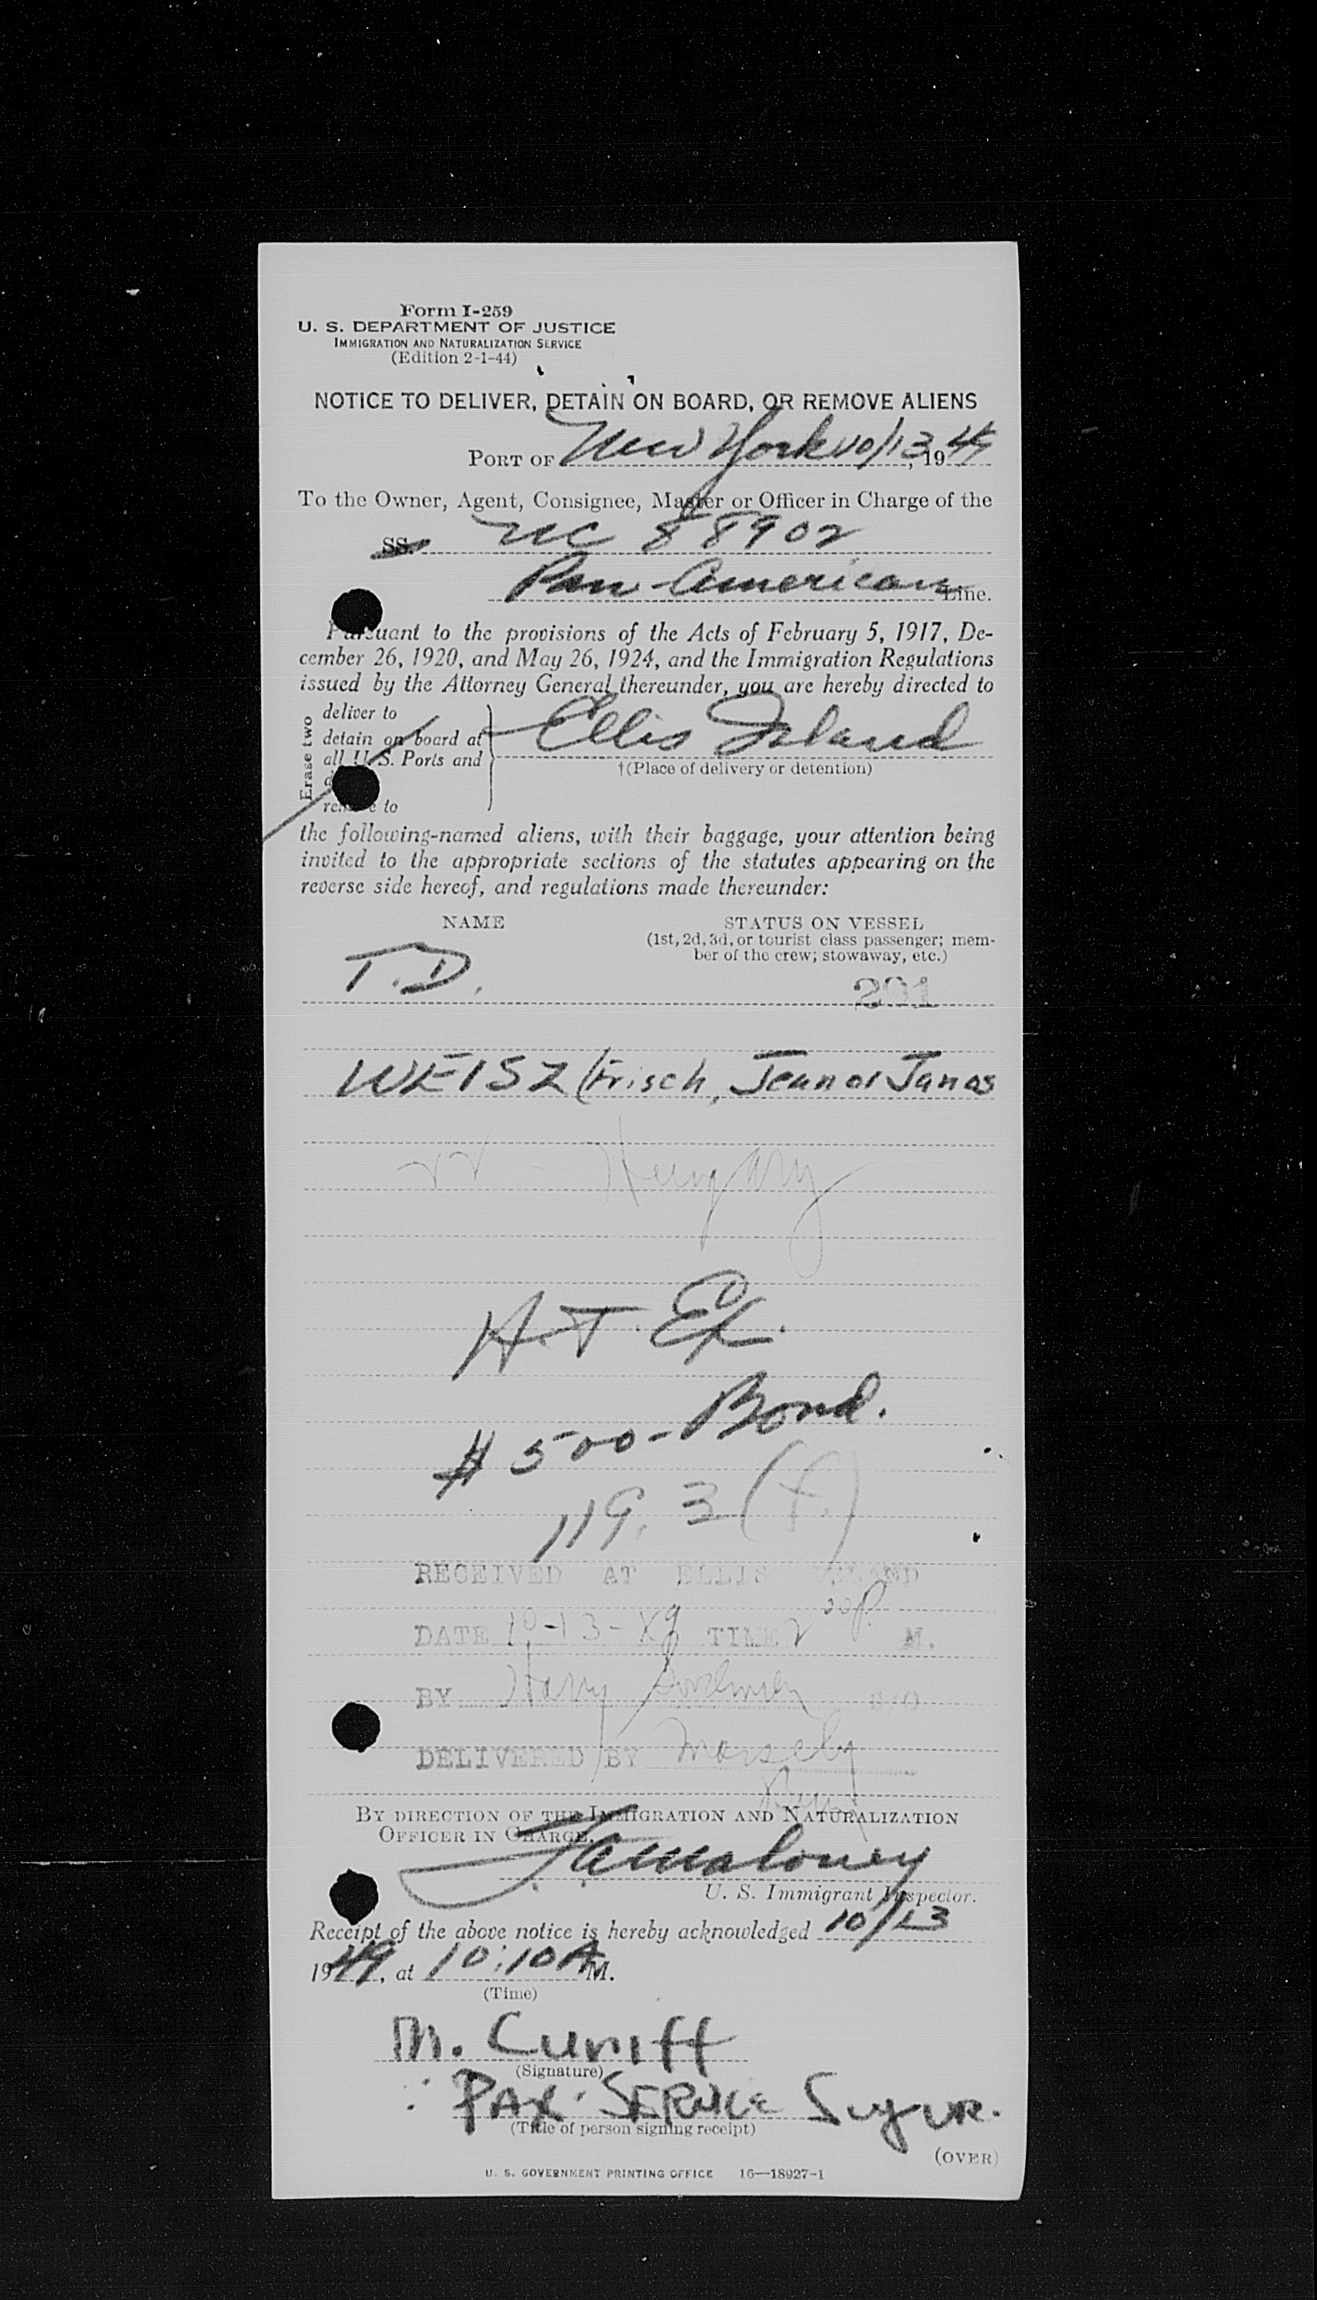 Form I-259
U. S. DEPARTMENT OF JUSTICE
IMMIGRATION AND NATURALIZATION SERVICE
(Edition 2-1-44)
NOTICE TO DELIVER, DETAIN ON BOARD, OR REMOVE ALIENS
PORT OF New York 10/13, 1949
To the Owner, Agent, Consignee, Master or Officer in Charge of the
SS. NC 88902
Pan American Line.
Pursuant to the provisions of the Acts of February 5, 1917, De-
cember 26, 1920, and May 26, 1924, and the Immigration Regulations
issued by the Attorney General thereunder, you are hereby directed to
Erase two
deliver to
detain on board at
all U. S. Ports and
Ellis Island
†(Place of delivery or detention)
remove to
the following-named aliens, with their baggage, your attention being
invited to the appropriate sections of the statutes appearing on the
reverse side hereof, and regulations made thereunder:
NAME STATUS ON VESSEL
(1st, 2d, 3d, or tourist class passenger; mem-
ber of the crew; stowaway, etc.)
T.D. 201
WEISZ (Frisch, Jean or Janos
Hungary
H.T. Ex.
$500- Bond.
119.3 (f)
RECEIVED AT ELLIS ISLAND
DATE 10-13-49 TIME 2 00 P. M.
BY Harry
DELIVERED BY
BY DIRECTION OF THE IMMIGRATION AND NATURALIZATION
OFFICER IN CHARGE.
J.A. Maloney
U. S. Immigrant Inspector.
Receipt of the above notice is hereby acknowledged 10/13
1949, at 10:10 A M.
(Time)
M. Cuniff
(Signature)
PAX. SERVICE Supvr.
(Title of person signing receipt)
(OVER)
U. S. GOVERNMENT PRINTING OFFICE 16—18927-1